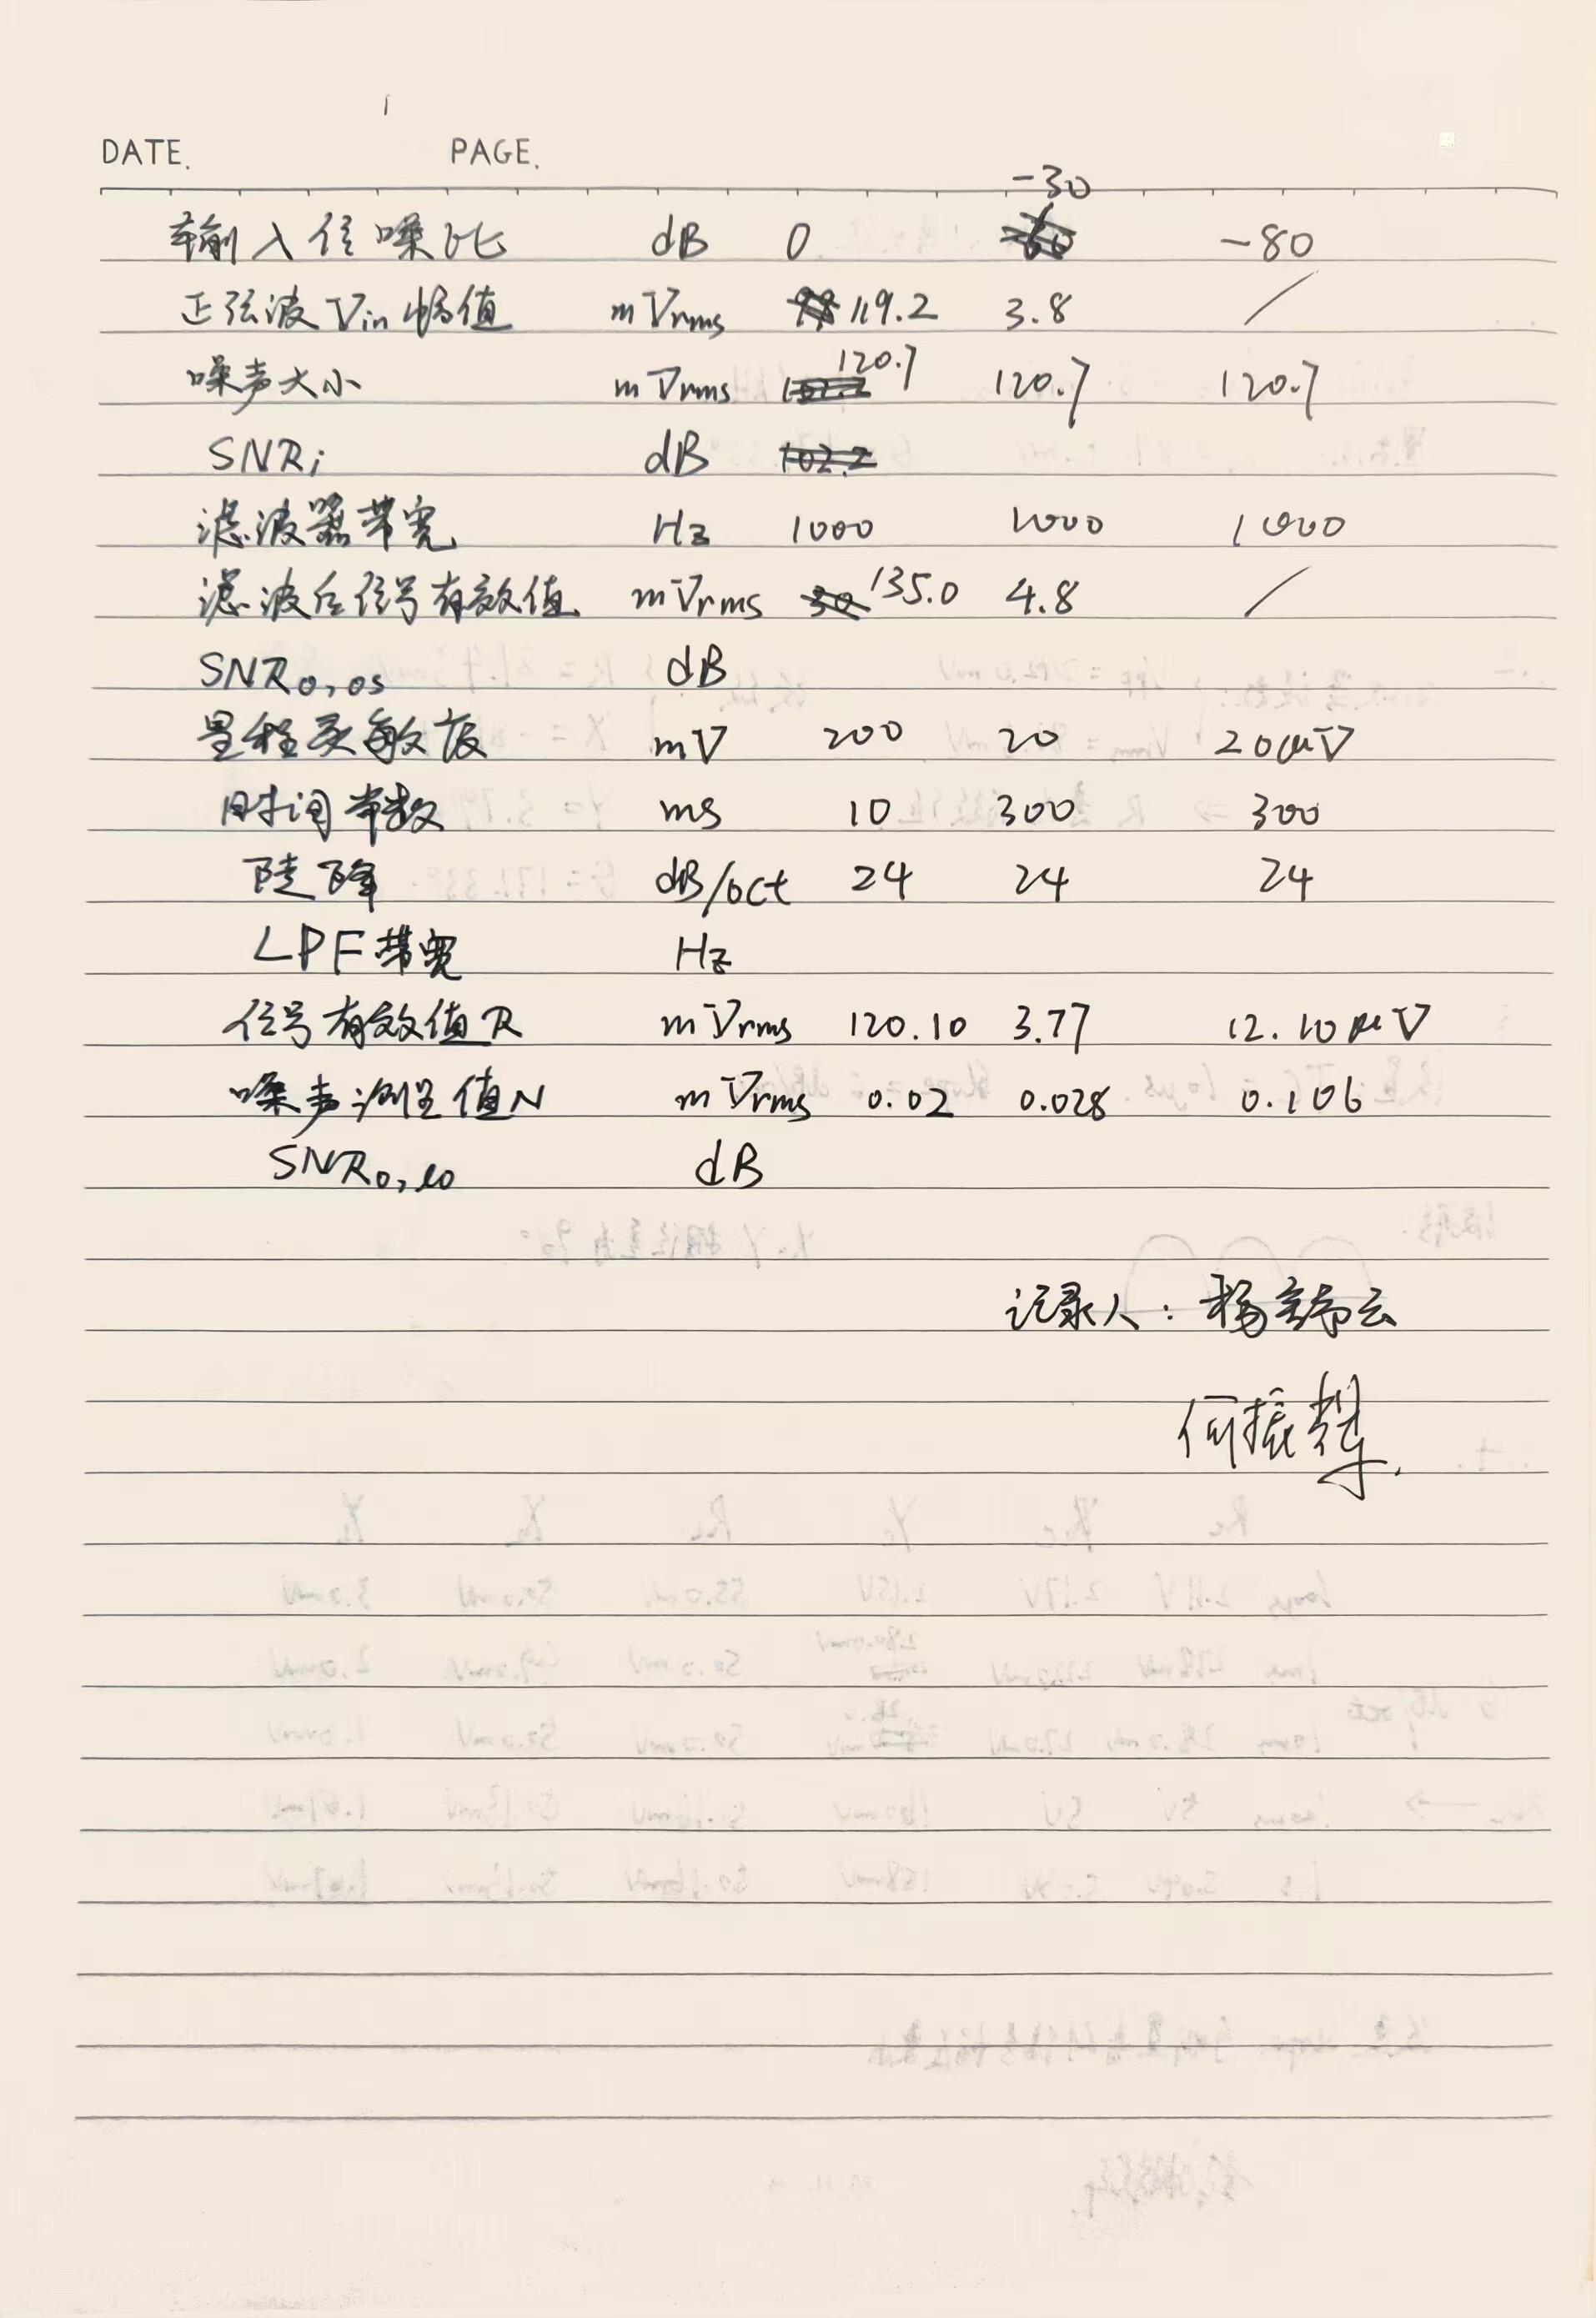 DATE. PAGE.
-30
输入信噪比 dB 0 -80
正弦波 Vin 幅值 mVrms 119.2 3.8 /
噪声大小 mVrms 120.7 120.7 120.7
SNRi dB 102.2
滤波器带宽 Hz 1000 1000 1000
滤波后信号有效值 mVrms 30 135.0 4.8 /
SNRo,os dB
量程灵敏度 mV 200 20 20μV
时间常数 ms 10 300 300
陡降 dB/oct 24 24 24
LPF带宽 Hz
信号有效值R mVrms 120.10 3.77 12.10μV
噪声测量值N mVrms 0.02 0.028 0.106
SNRo,lo dB
记录人：杨
何振